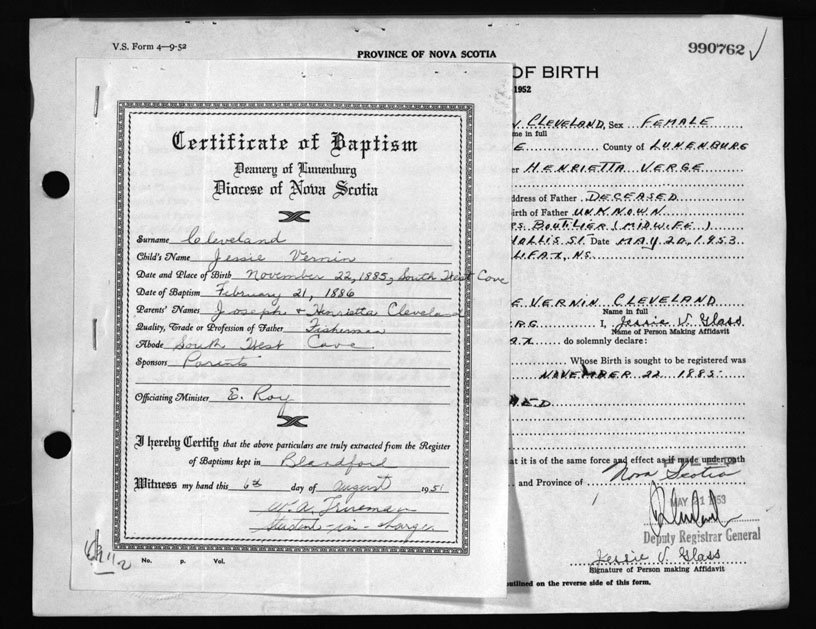 V.S. Form 4—9-52
PROVINCE OF NOVA SCOTIA
990762
Certificate of Baptism
Deanery of Lunenburg
Diocese of Nova Scotia
Surname Cleveland
Child's Name Jessie Vernin
Date and Place of Birth November 22, 1885, South West Cove
Date of Baptism February 21, 1886
Parents' Names Joseph + Henrietta Cleveland
Quality, Trade or Profession of Father Fisherman
Abode South West Cove.
Sponsors Parents
Officiating Minister E. Roy
I hereby Certify that the above particulars are truly extracted from the Register
of Baptisms kept in Blandford
Witness my hand this 6th day of August 1951
W. A. Trueman
Student-in-charge
No. P. Vol.
OF BIRTH
1952
CLEVELAND, Sex FEMALE
me in full
E County of LUNENBURG
er HENRIETTA VERGE
ddress of Father DECEASED
irth of Father UNKNOWN
RS BOUTILIER (MIDWIFE)
HOLLIS ST. Date MAY 20, 1953
LIFAX, NS.
E VERNIN CLEVELAND
Name in full
RG I, Jessie V Glass
Name of Person Making Affidavit
AX do solemnly declare:
Whose Birth is sought to be registered was
NOVEMBER 22 1885
ED
at it is of the same force and effect as if made under oath
and Province of Nova Scotia
MAY 21 1953
Deputy Registrar General
Jessie V. Glass
Signature of Person making Affidavit
outlined on the reverse side of this form.